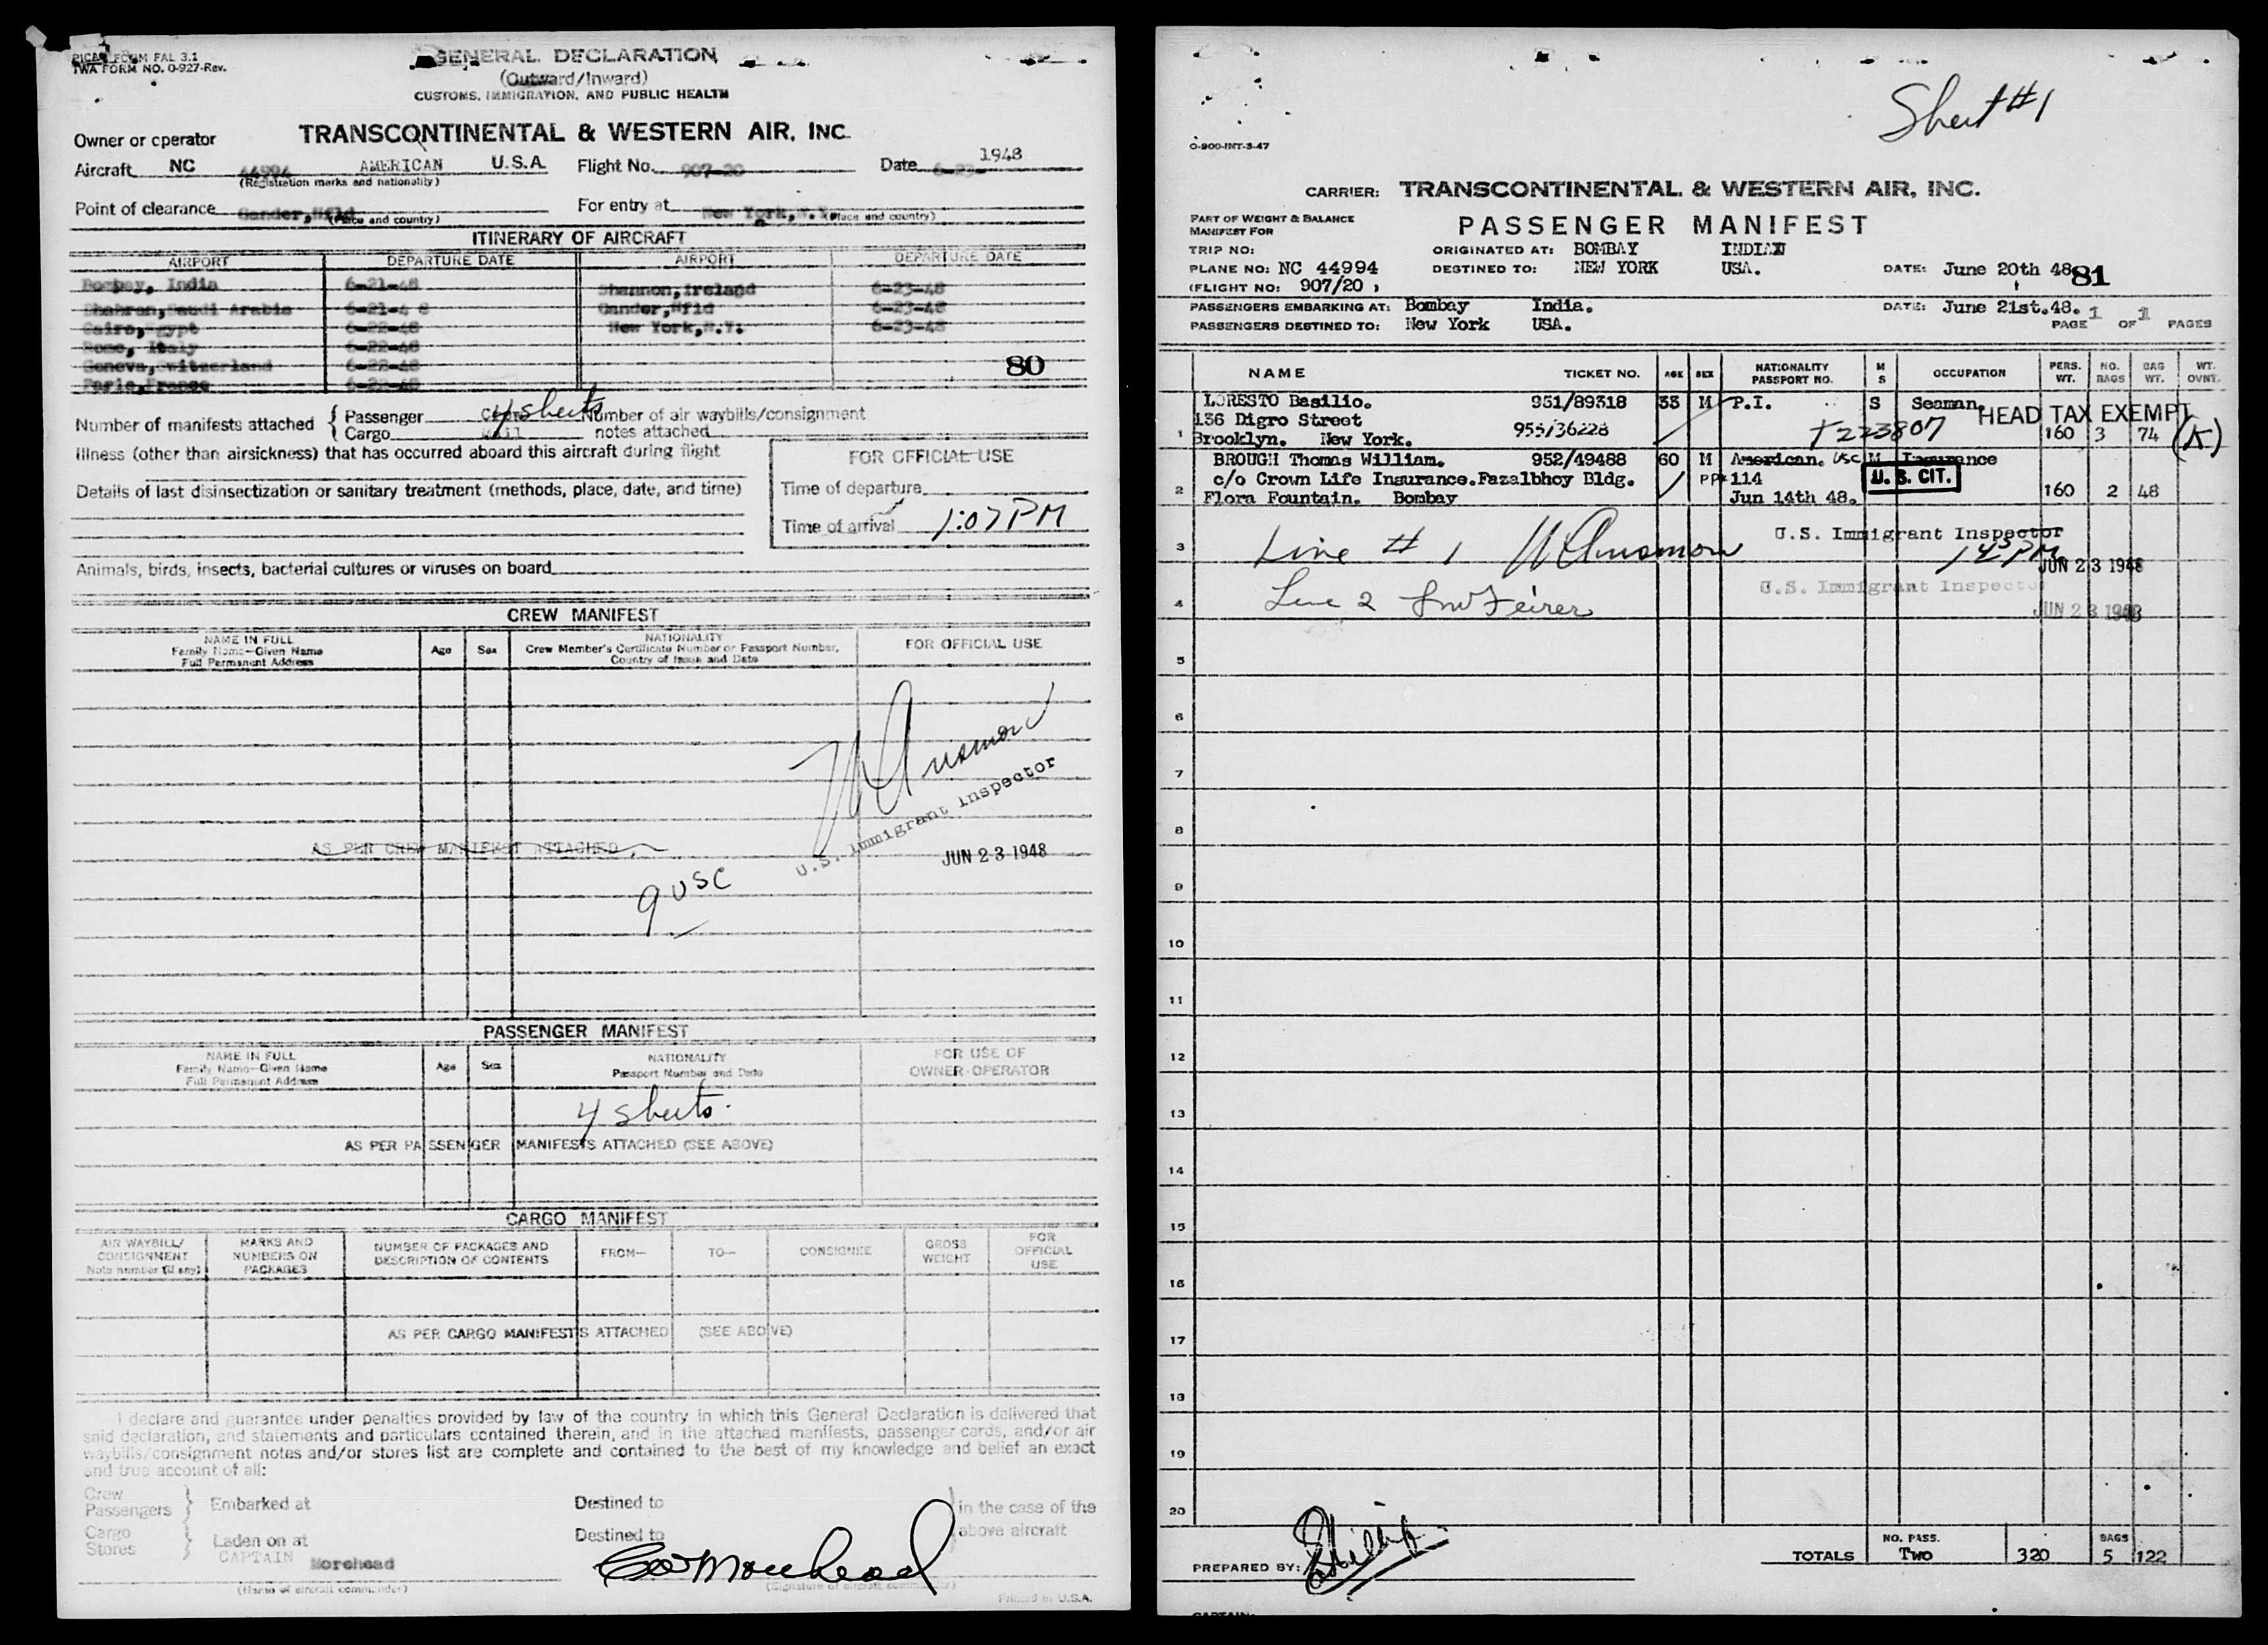 PICAO FORM FAL 3.1
TWA FORM NO. 0-927-Rev.
GENERAL DECLARATION
(Outward/Inward)
CUSTOMS, IMMIGRATION, AND PUBLIC HEALTH
Owner or operator TRANSCONTINENTAL & WESTERN AIR, INC.
Aircraft NC 44994 AMERICAN U.S.A. Flight No. 907-20 Date 6-23- 1948
(Registration marks and nationality)
Point of clearance Gander, Nfld For entry at New York, N.Y.
(Place and country) (Place and country)
ITINERARY OF AIRCRAFT
AIRPORT DEPARTURE DATE AIRPORT DEPARTURE DATE
Bombay, India 6-21-48 Shannon, Ireland 6-23-48
Dhahran, Saudi Arabia 6-21-4 8 Gander, Nfld 6-23-48
Cairo, Egypt 6-22-48 New York, N.Y. 6-23-48
Rome, Italy 6-22-48
Geneva, Switzerland 6-22-48
Paris, France 6-22-48
80
Number of manifests attached { Passenger 4 sheets Number of air waybills/consignment
Cargo notes attached
Illness (other than airsickness) that has occurred aboard this aircraft during flight
Details of last disinsectization or sanitary treatment (methods, place, date, and time)
FOR OFFICIAL USE
Time of departure
Time of arrival 1:07 PM
Animals, birds, insects, bacterial cultures or viruses on board
CREW MANIFEST
NAME IN FULL
Family Name—Given Name
Full Permanent Address
Age
Sex
NATIONALITY
Crew Member's Certificate Number or Passport Number,
Country of Issue and Date
FOR OFFICIAL USE
U.S. Immigrant Inspector
AS PER CREW MANIFEST ATTACHED
JUN 23 1948
9 USC
PASSENGER MANIFEST
NAME IN FULL
Family Name—Given Name
Full Permanent Address
Age
Sex
NATIONALITY
Passport Number and Date
FOR USE OF
OWNER-OPERATOR
4 sheets.
AS PER PASSENGER MANIFESTS ATTACHED (SEE ABOVE)
CARGO MANIFEST
AIR WAYBILL/
CONSIGNMENT
Note number (if any)
MARKS AND
NUMBERS ON
PACKAGES
NUMBER OF PACKAGES AND
DESCRIPTION OF CONTENTS
FROM—
TO—
CONSIGNEE
GROSS
WEIGHT
FOR
OFFICIAL
USE
AS PER CARGO MANIFESTS ATTACHED (SEE ABOVE)
I declare and guarantee under penalties provided by law of the country in which this General Declaration is delivered that
said declaration, and statements and particulars contained therein, and in the attached manifests, passenger cards, and/or air
waybills/consignment notes and/or stores list are complete and contained to the best of my knowledge and belief an exact
and true account of all:
Crew
Passengers } Embarked at Destined to } in the case of the
Cargo
Stores } Laden on at Destined to above aircraft
CAPTAIN Morehead
(Name of aircraft commander) (Signature of aircraft commander)
Printed in U.S.A.
Sheet #1
O-900-INT-3-47
CARRIER: TRANSCONTINENTAL & WESTERN AIR, INC.
PART OF WEIGHT & BALANCE
MANIFEST FOR
PASSENGER MANIFEST
TRIP NO: ORIGINATED AT: BOMBAY INDIA
PLANE NO: NC 44994 DESTINED TO: NEW YORK USA. DATE: June 20th 48
(FLIGHT NO: 907/20 ) 81
PASSENGERS EMBARKING AT: Bombay India. DATE: June 21st.48.
PASSENGERS DESTINED TO: New York USA. PAGE 1 OF 1 PAGES
NAME TICKET NO. AGE SEX NATIONALITY PASSPORT NO. M S OCCUPATION PERS. WT. NO. BAGS BAG WT. WT. OVNT.
LORESTO Basilio. 951/89318 33 M P.I. S Seaman HEAD TAX EXEMPT
136 Digro Street T223807
1 Brooklyn. New York. 955/36228 160 3 74 (K)
BROUGH Thomas William. 952/49488 60 M American. USC M Insurance
c/o Crown Life Insurance.Fazalbhoy Bldg. PP# 114 U. S. CIT.
2 Flora Fountain. Bombay Jun 14th 48. 160 2 48
U.S. Immigrant Inspector
3 Line # 1
JUN 23 1948
U.S. Immigrant Inspector
4 Line 2
JUN 23 1948
5
6
7
8
9
10
11
12
13
14
15
16
17
18
19
20
PREPARED BY:
TOTALS NO. PASS. Two 320 BAGS 5 122
CAPTAIN: